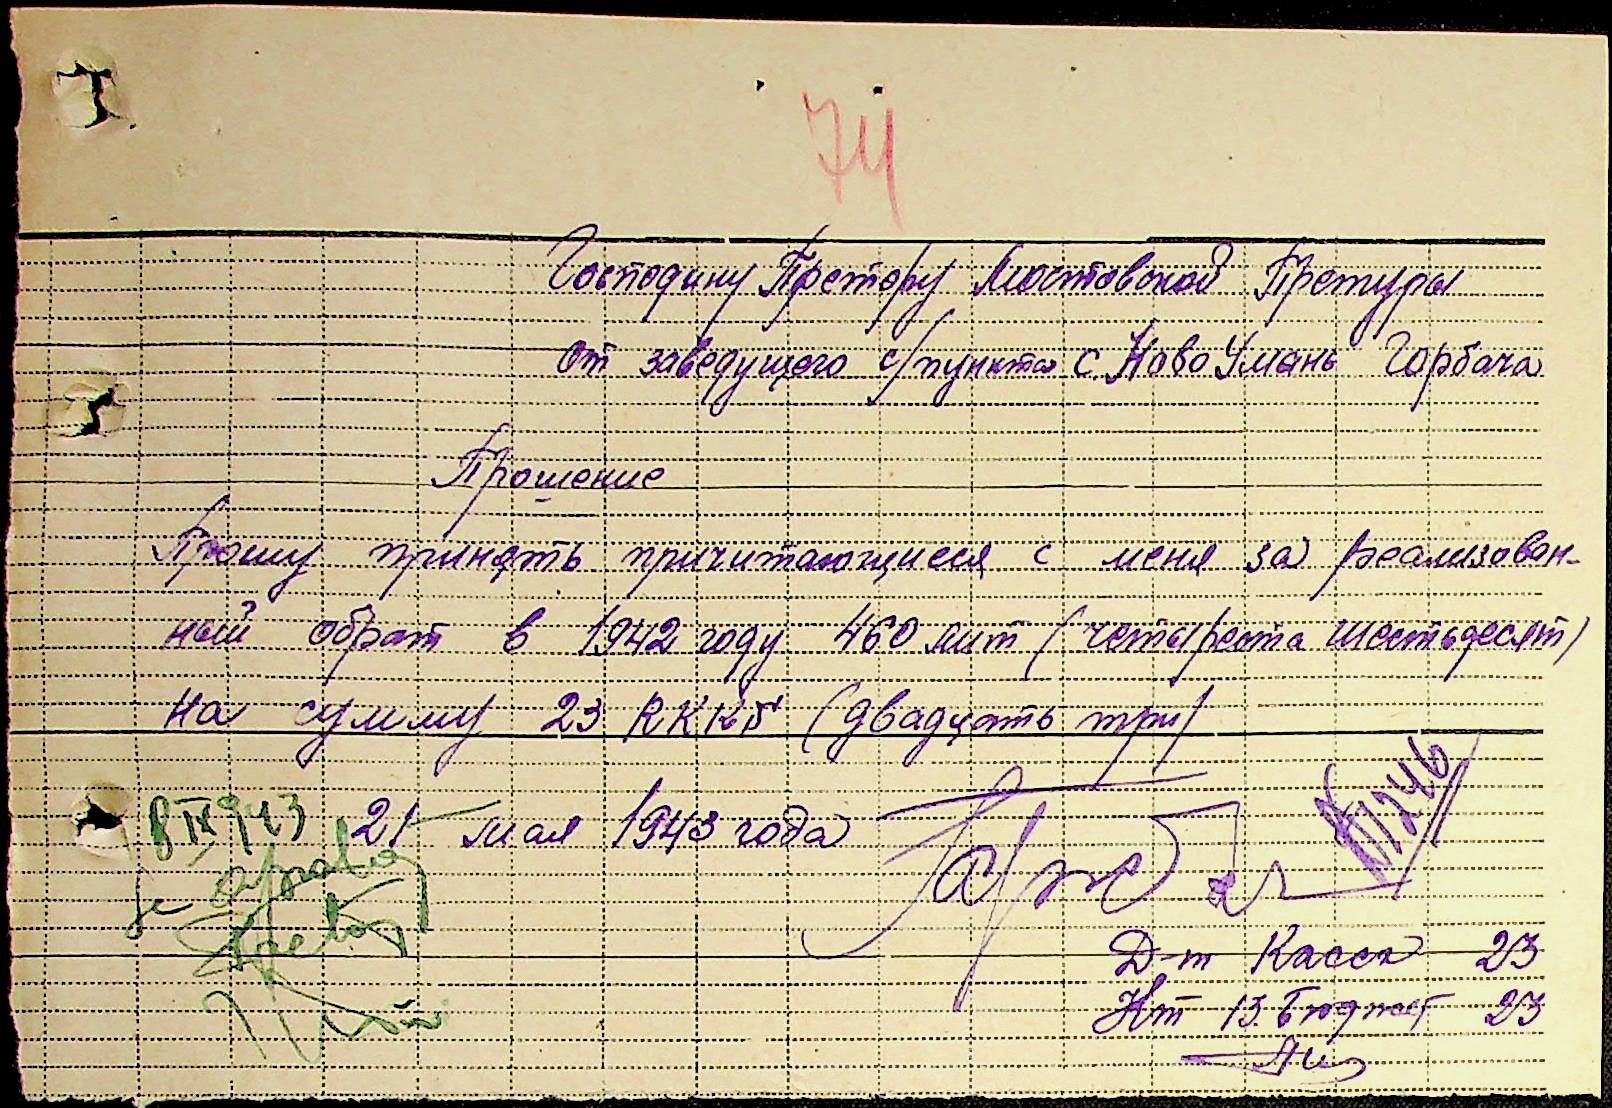 74
Господину Претору Мостовской Претуры
от заведущего с/пункта с. Ново Умань Горбача
Прошение
Прошу принять причитающиеся с меня за реализован-
ный обрат в 1942 году 460 лит (четыреста шестьдесят)
на сумму 23 RKKS (двадцать три)
8 IX 943
21 мая 1943 года
№ 1246
Д-т Касса 23
Кт 13. Бюджет 23